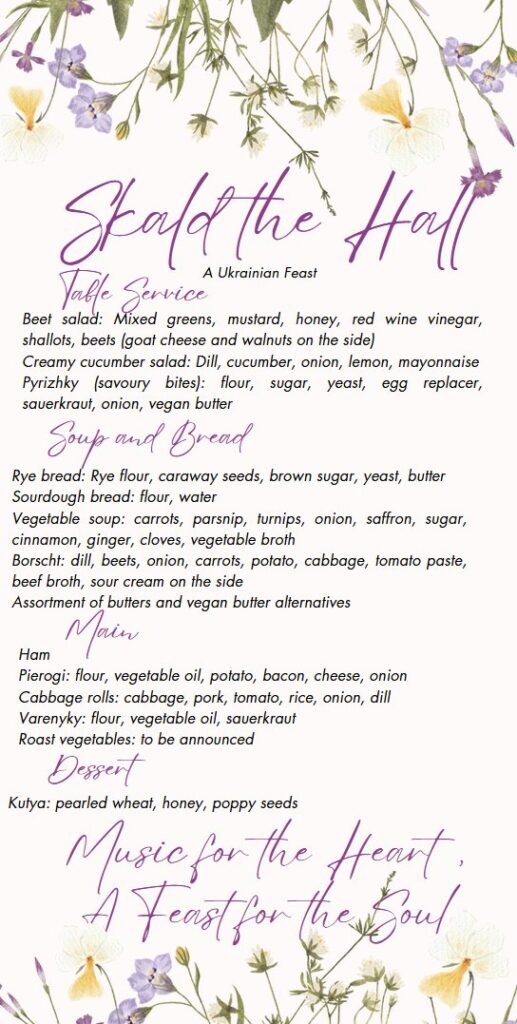 Skald the Hall
A Ukrainian Feast
Table Service
Beet salad: Mixed greens, mustard, honey, red wine vinegar,
shallots, beets (goat cheese and walnuts on the side)
Creamy cucumber salad: Dill, cucumber, onion, lemon, mayonnaise
Pyrizhky (savoury bites): flour, sugar, yeast, egg replacer,
sauerkraut, onion, vegan butter
Soup and Bread
Rye bread: Rye flour, caraway seeds, brown sugar, yeast, butter
Sourdough bread: flour, water
Vegetable soup: carrots, parsnip, turnips, onion, saffron, sugar,
cinnamon, ginger, cloves, vegetable broth
Borscht: dill, beets, onion, carrots, potato, cabbage, tomato paste,
beef broth, sour cream on the side
Assortment of butters and vegan butter alternatives
Main
Ham
Pierogi: flour, vegetable oil, potato, bacon, cheese, onion
Cabbage rolls: cabbage, pork, tomato, rice, onion, dill
Varenyky: flour, vegetable oil, sauerkraut
Roast vegetables: to be announced
Dessert
Kutya: pearled wheat, honey, poppy seeds
Music for the Heart ,
A Feast for the Soul